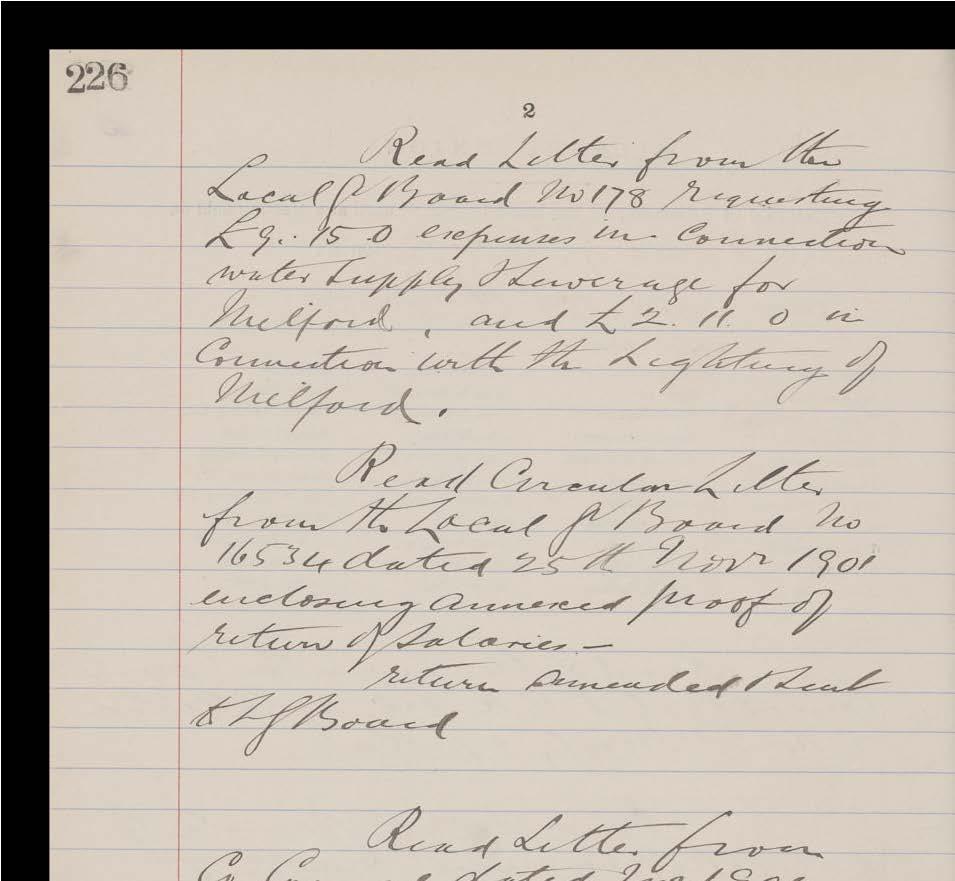 226
2
Read Letter from the
Local G Board No 178 requesting
£9. 15 0 expenses in connection
water supply & Sewerage for
Milford, and £2. 11. 0 in
Connection with the Lighting of
Milford.
Read Circular Letter
from the Local G Board No
16534 dated 25th Novr 1901
enclosing annexed proof of
return of Salaries. —
return amended & sent
to L G Board
Read Letter from
Co dated